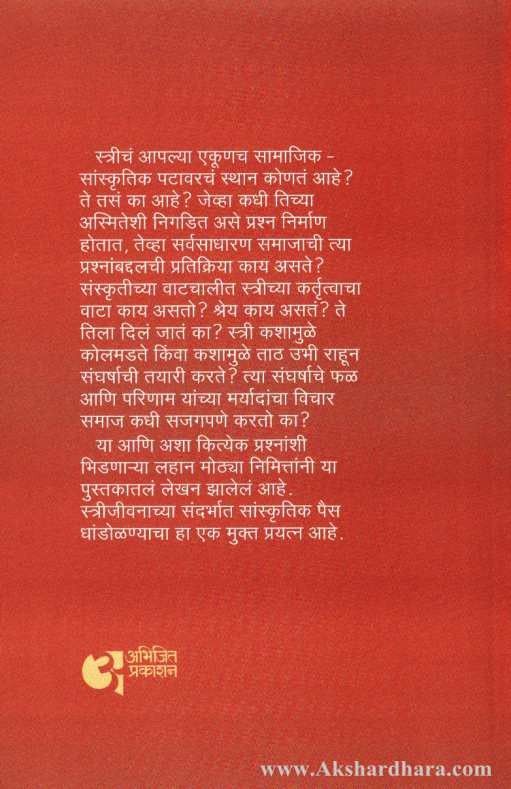 स्त्रीचं आपल्या एकूणच सामाजिक -
सांस्कृतिक पटावरचं स्थान कोणतं आहे?
ते तसं का आहे? जेव्हा कधी तिच्या
अस्मितेशी निगडित असे प्रश्न निर्माण
होतात, तेव्हा सर्वसाधारण समाजाची त्या
प्रश्नांबद्दलची प्रतिक्रिया काय असते?
संस्कृतीच्या वाटचालीत स्त्रीच्या कर्तृत्वाचा
वाटा काय असतो? श्रेय काय असतं? ते
तिला दिलं जातं का? स्त्री कशामुळे
कोलमडते किंवा कशामुळे ताठ उभी राहून
संघर्षाची तयारी करते? त्या संघर्षाचे फळ
आणि परिणाम यांच्या मर्यादांचा विचार
समाज कधी सजगपणे करतो का?
या आणि अशा कित्येक प्रश्नांशी
भिडणाऱ्या लहान मोठ्या निमित्तांनी या
पुस्तकातलं लेखन झालेलं आहे.
स्त्रीजीवनाच्या संदर्भात सांस्कृतिक पैस
धांडोळण्याचा हा एक मुक्त प्रयत्न आहे.
अभिजित
प्रकाशन
www.Akshardhara.com